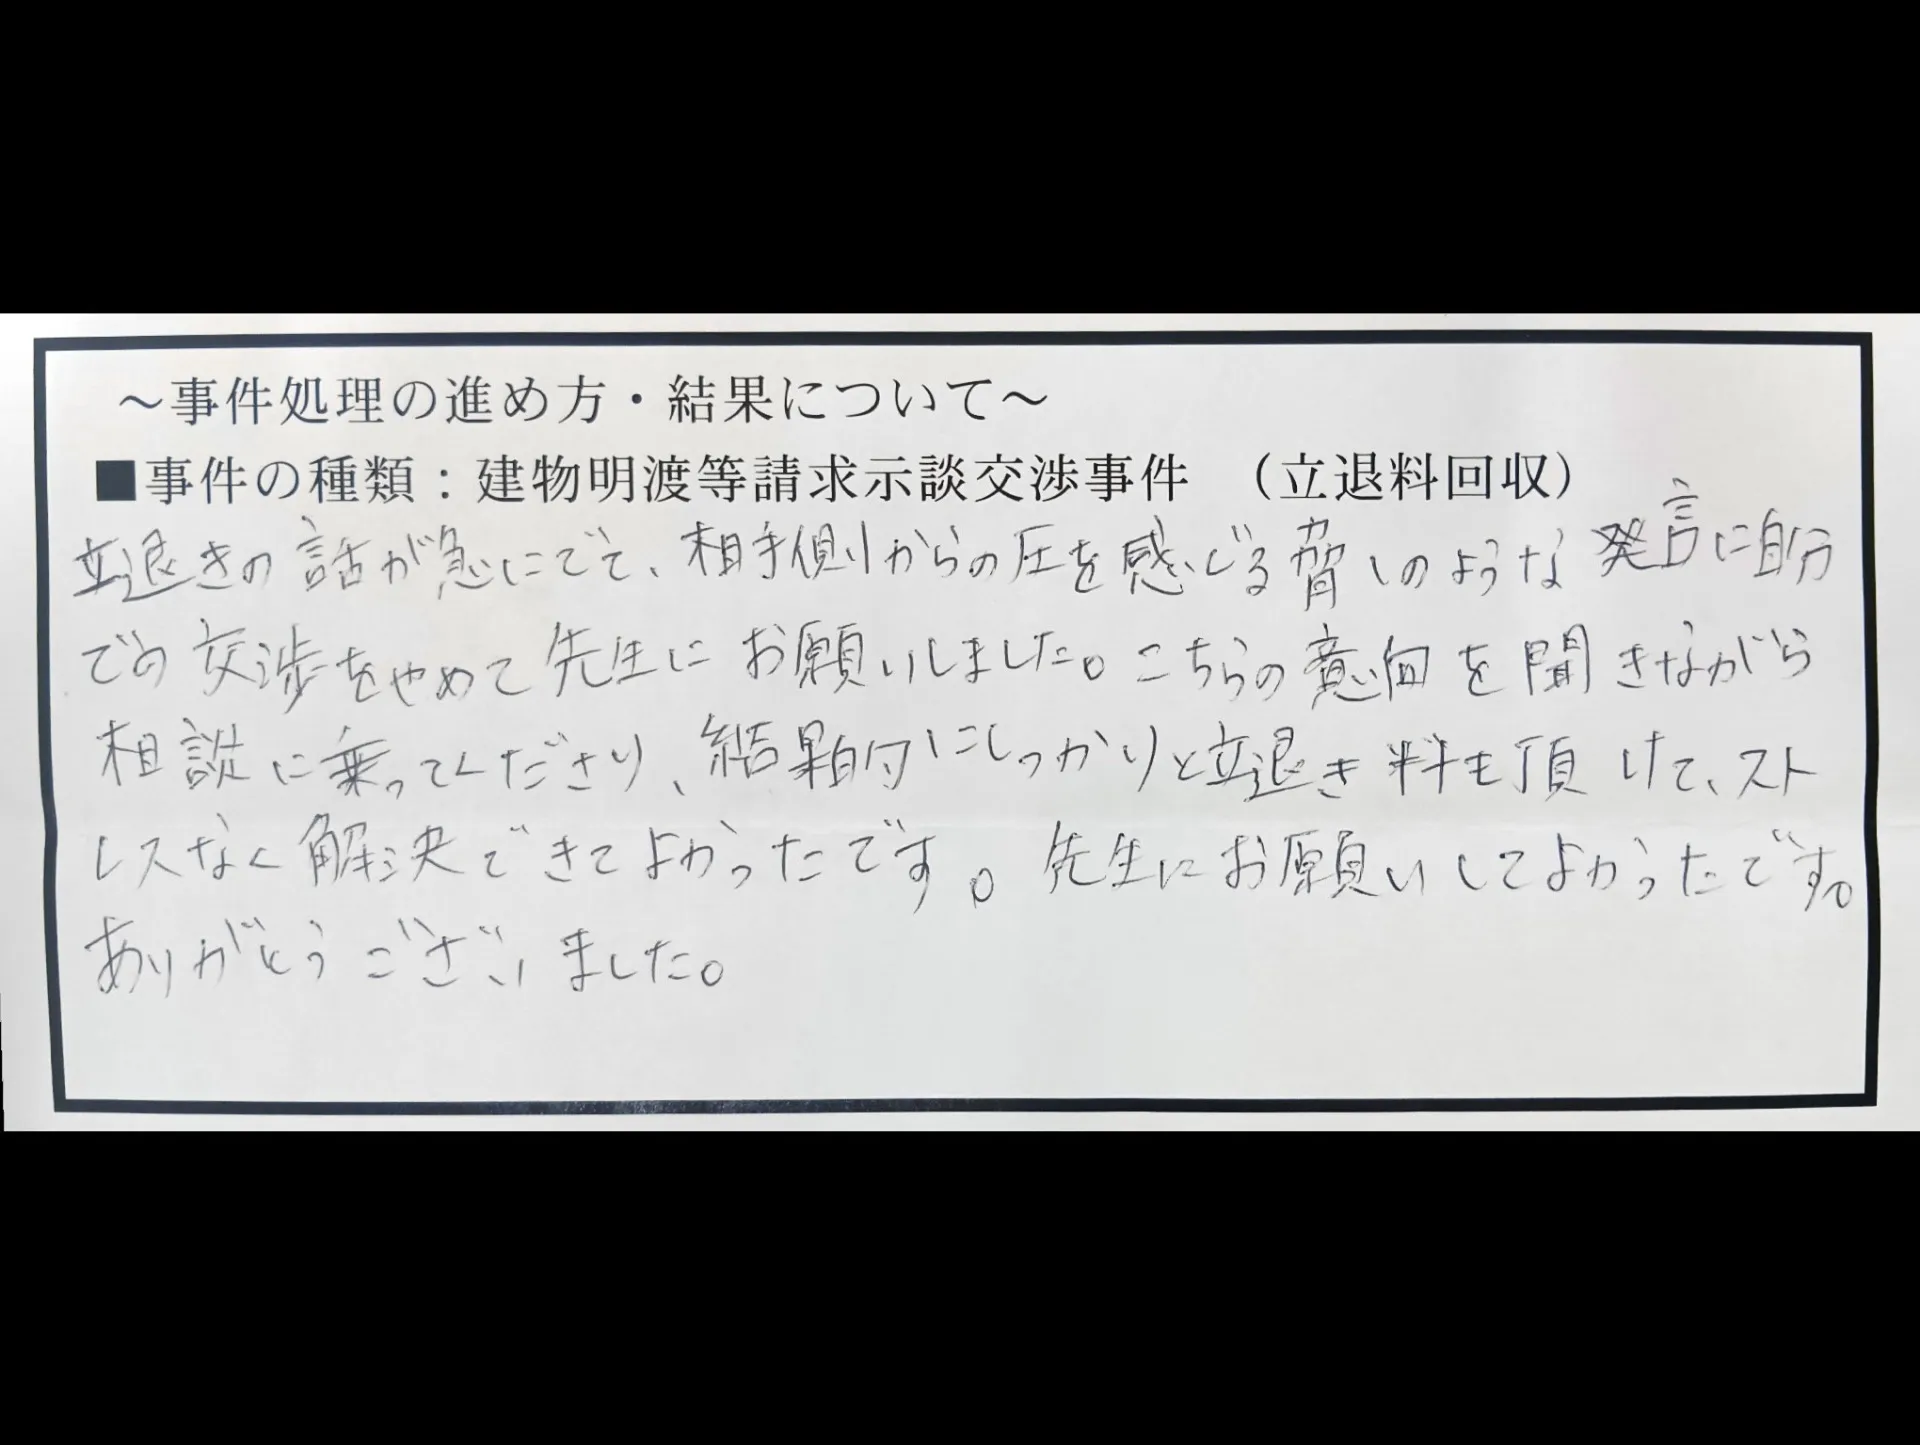 ～事件処理の進め方・結果について～
■事件の種類：建物明渡等請求示談交渉事件　（立退料回収）
立退きの話が急にでて、相手側からの圧を感じる脅しのような発言に自分
での交渉をやめて先生にお願いしました。こちらの意向を聞きながら
相談に乗ってくださり、結果的にしっかりと立退き料も頂けて、スト
レスなく解決できてよかったです。先生にお願いしてよかったです。
ありがとうございました。